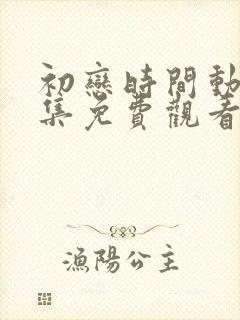 初戀時間動
集免費觀看
漁陽公主